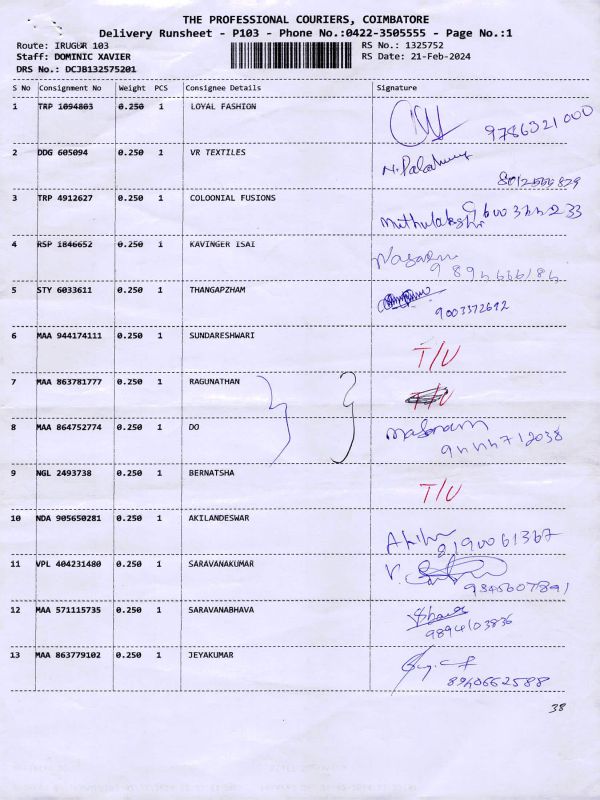 THE PROFESSIONAL COURIERS, COIMBATORE
Delivery Runsheet - P103 - Phone No.:0422-3505555 - Page No.:1
Route: IRUGUR 103 RS No.: 1325752
Staff: DOMINIC XAVIER RS Date: 21-Feb-2024
DRS No.: DCJB132575201
S No Consignment No Weight PCS Consignee Details Signature
1 TRP 1094803 0.250 1 LOYAL FASHION
9786321000
2 DDG 605094 0.250 1 VR TEXTILES
3 TRP 4912627 0.250 1 COLOONIAL FUSIONS
Muthulakshmi
4 RSP 1846652 0.250 1 KAVINGER ISAI
5 STY 6033611 0.250 1 THANGAPZHAM
9003372692
6 MAA 944174111 0.250 1 SUNDARESHWARI
T/U
7 MAA 863781777 0.250 1 RAGUNATHAN
T/U
8 MAA 864752774 0.250 1 DO
9 NGL 2493738 0.250 1 BERNATSHA
T/U
10 NDA 905650281 0.250 1 AKILANDESWAR
8190061367
11 VPL 404231480 0.250 1 SARAVANAKUMAR
9345607891
12 MAA 571115735 0.250 1 SARAVANABHAVA
9894103836
13 MAA 863779102 0.250 1 JEYAKUMAR
8940662588
38